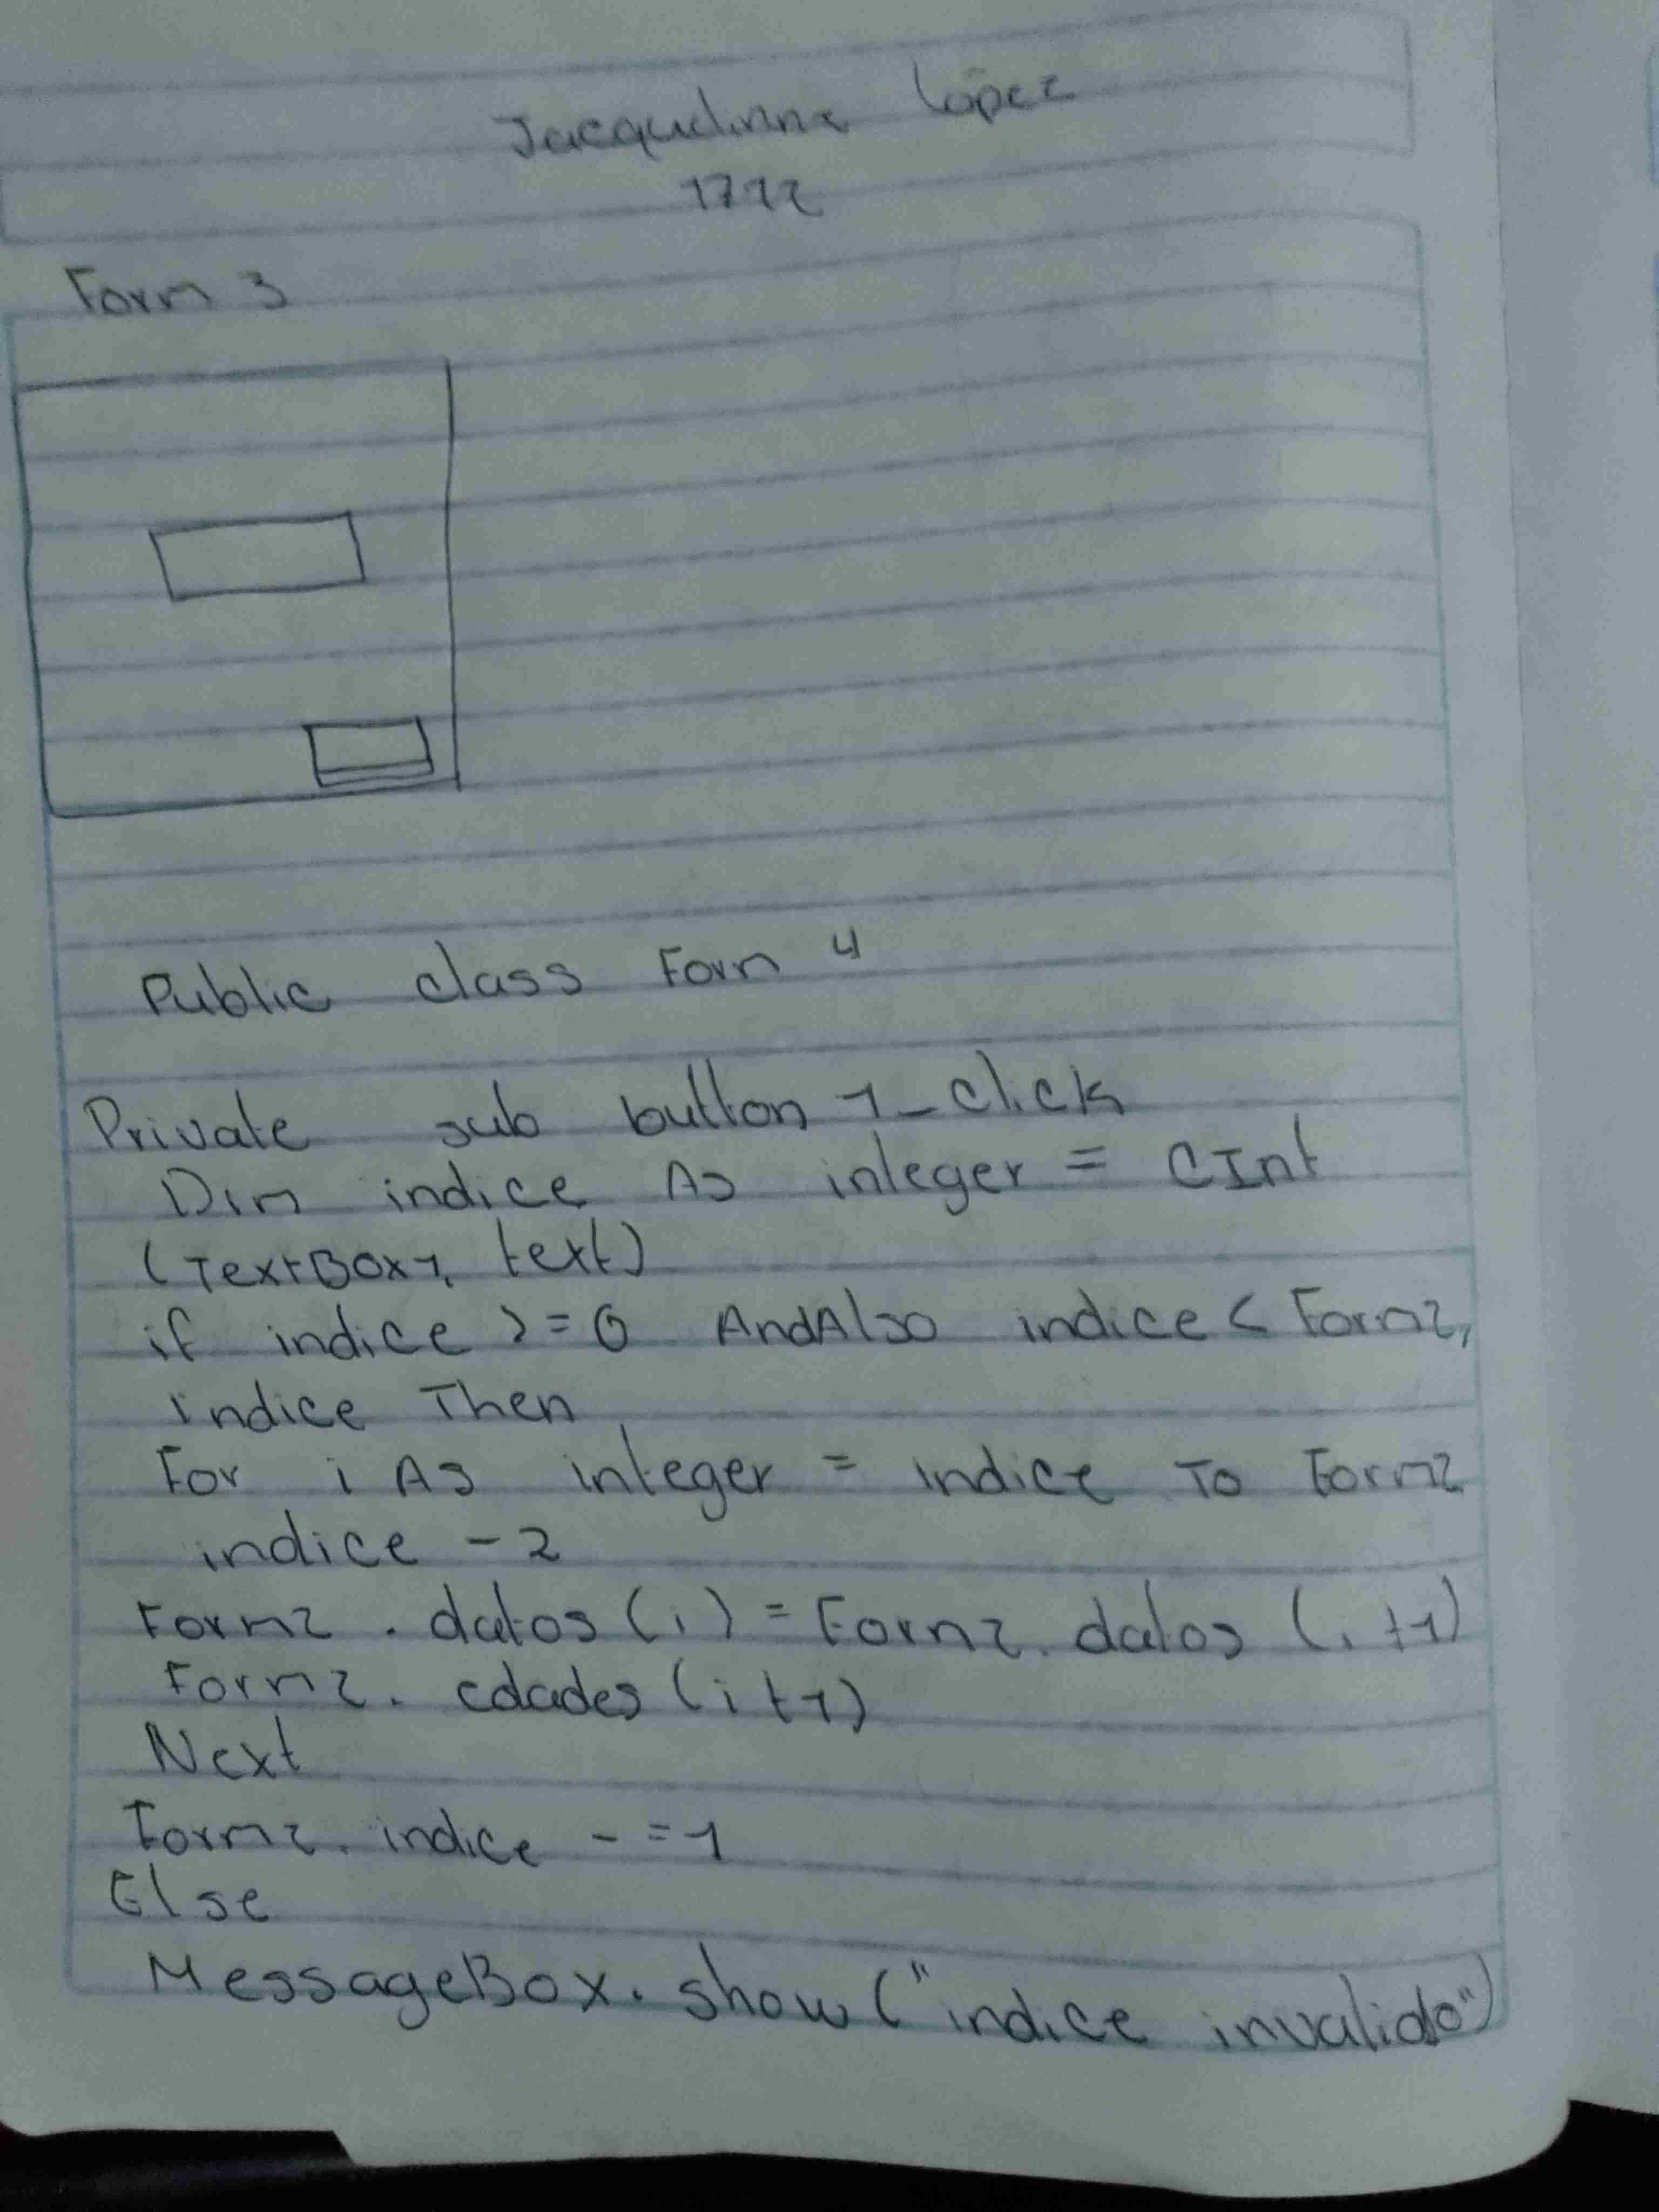 Jacquelinne López
1712
Form 3
Public class Form 4
Private sub button 1_click
Dim indice As integer = CInt
(TextBox1. text)
if indice >=0 AndAlso indice < Form2,
indice Then
For i As integer = indice To Form2
indice -2
Form2 . datos (i) = Form2. datos (i +1)
Form2. edades (i +1)
Next
Form2. indice - =1
Else
MessageBox. show ("indice invalido")